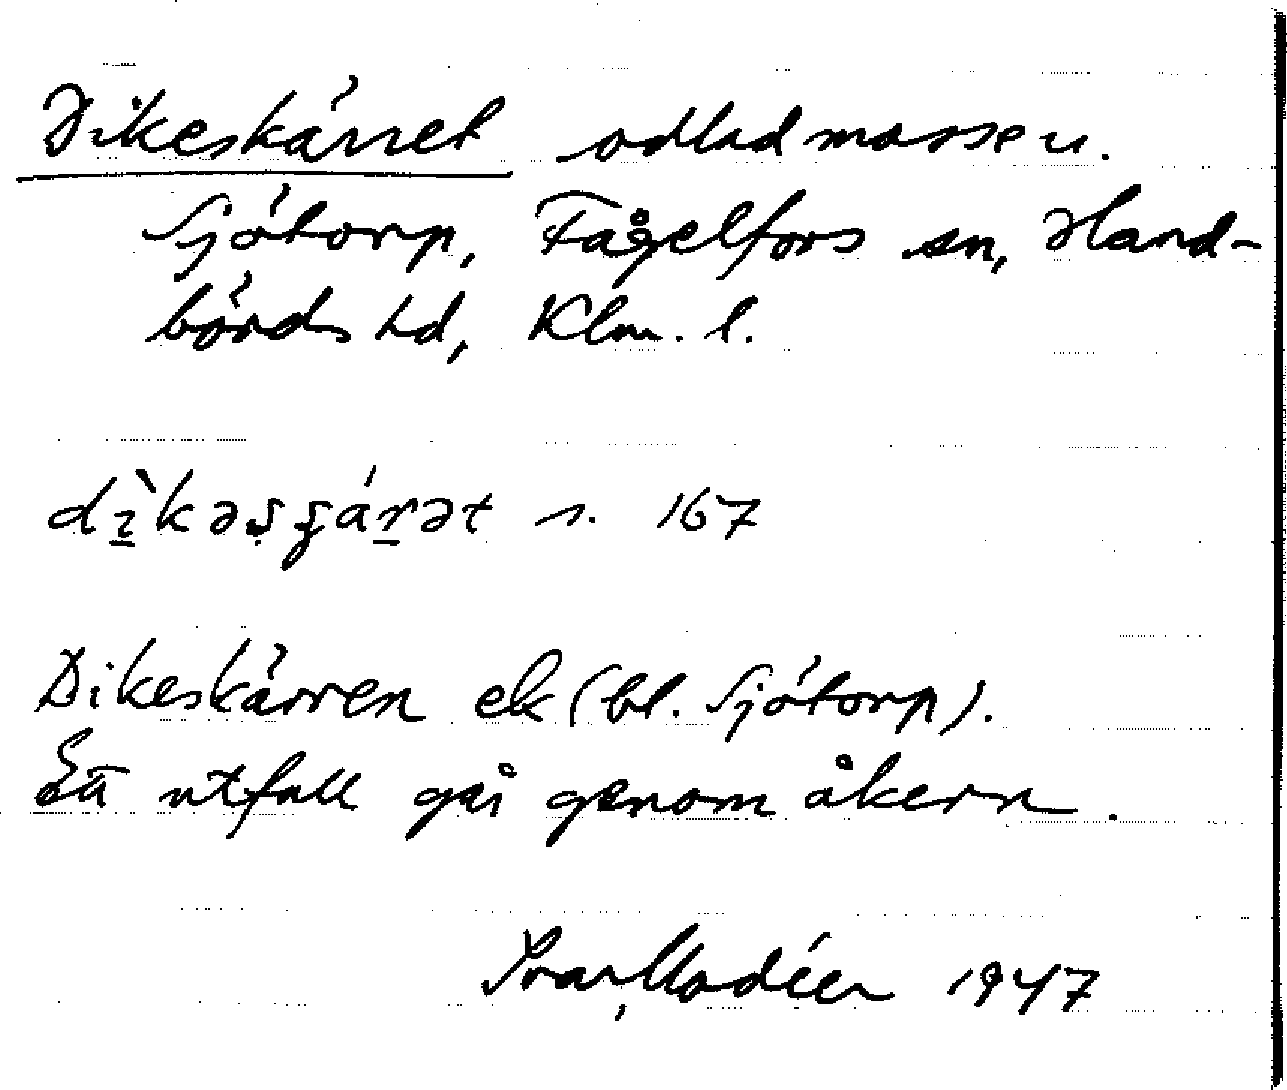 Dikeskärret odlad mosse u.
Sjötorp, Fågelfors sn, Hand-
börds hd, Klm. l.
dı̀kəṣʂá̱rət s. 167
Dikeskärren ek (bl. Sjötorp).
Ett utfall går genom åkern.
Ivar Modéer 1947